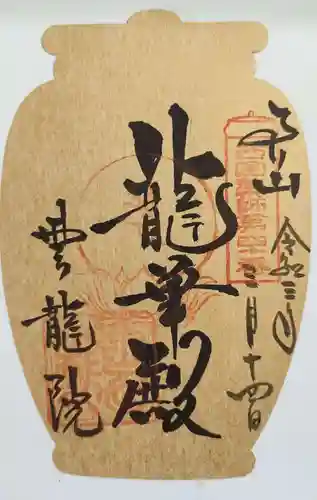 泉山
令和三年
三月十四日
龍華殿
雲龍院